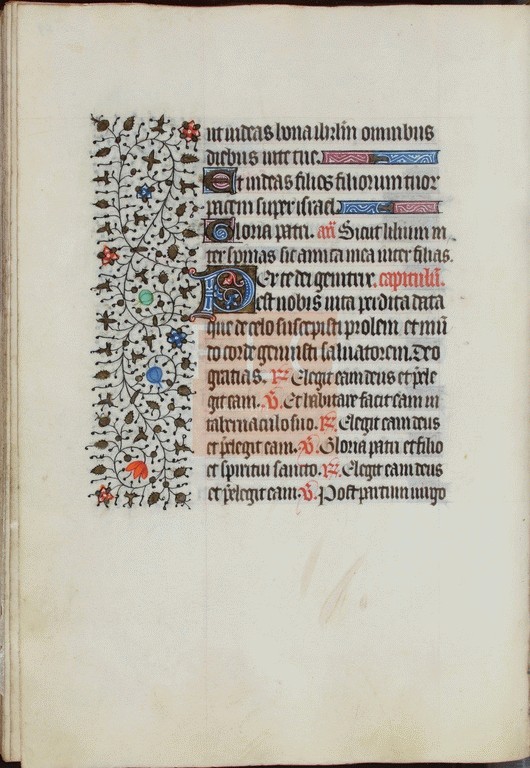 ut uideas bona ihrl'm omnibus
diebus uite tue.
Et uideas filios filiorum tuor
pacem super israel.
Gloria patri. añ Sicut lilium in
ter spinas sic amica mea inter filias.
Per te dei genitrix. capitulū.
est nobis uita perdita data
que de celo suscepisti prolem et mū
do corde genuisti saluatorem. Deo
gratias. R̷ Elegit eam deus et p̄ele
git eam. V̷. Et habitare facit eam in
tabernaculo suo. R̷. Elegit eam deus
et p̄elegit eam. V̷. Gloria patri et filio
et spiritui sancto. R̷. Elegit eam deus
et p̄elegit eam. V̷. Post partum uirgo